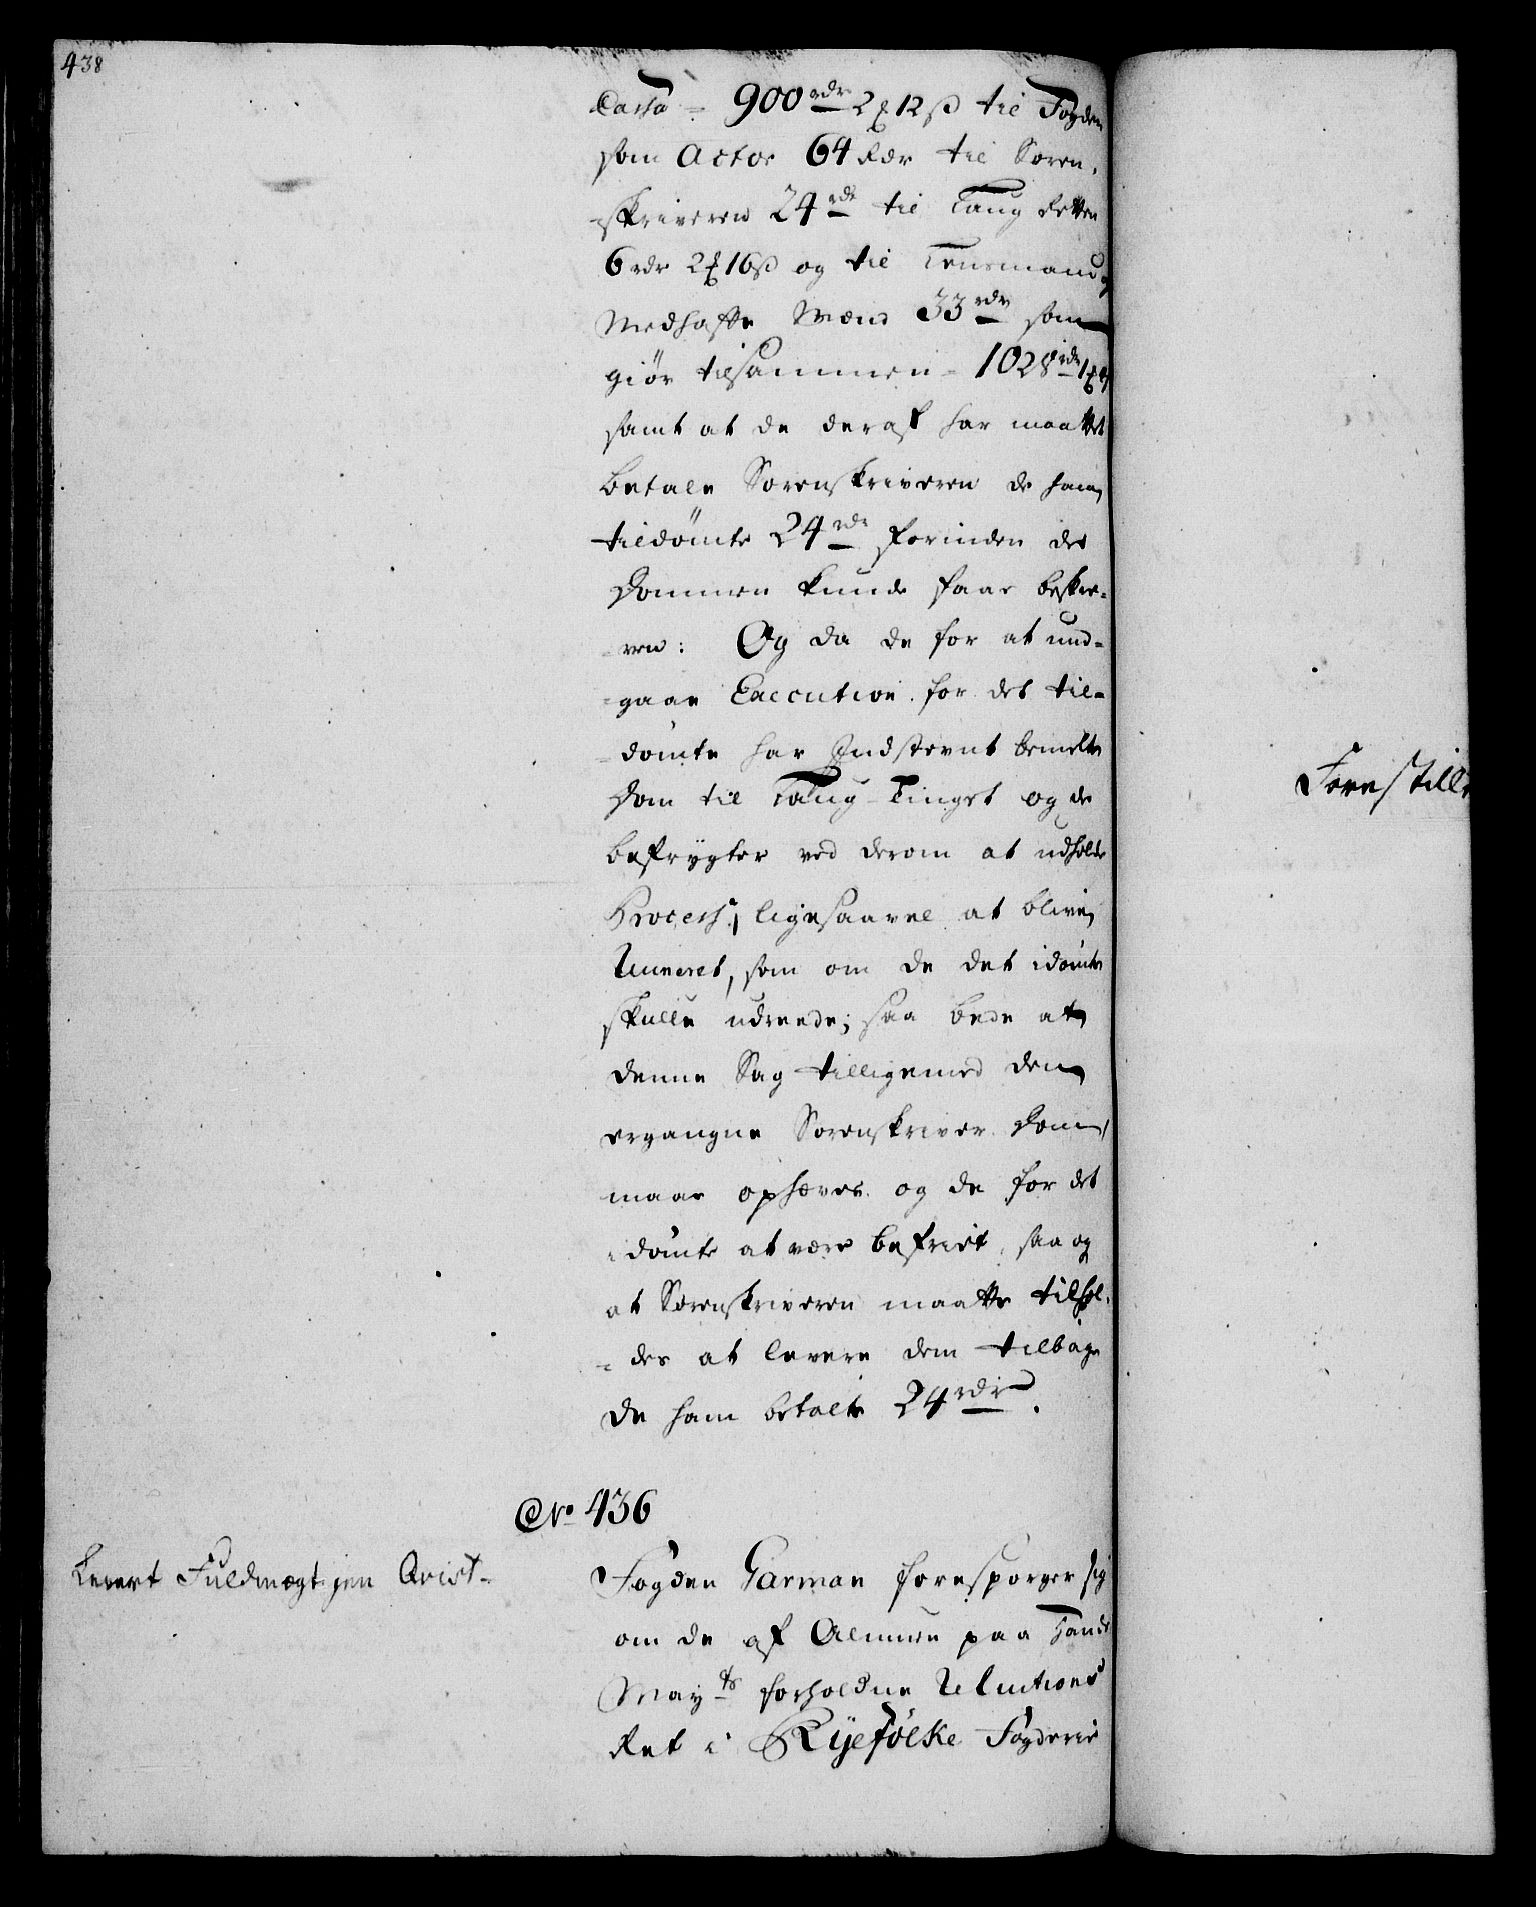 438
Cassa - 900 rdr 2 ƶ 12 ß til Fogden
som Actor 64 Rdr til Soren-
-skriveren 24 rdr til Laug Retten
6 rdr 2 ƶ 16 ß og til Lensmand og
Medhafte Mænd 33 rdr som
giör tilsammen - 1028 rdr 1 ƶ
samt at de deraf har maattet
betale Sorenskriveren de ham
tildömte 24 rdr forinden de
Dommen kunde faae beskre-
-ven: Og da de for at und-
-gaae Execution for det til-
-dömte har Indstevnt bemelte
Dom til Laug-Tinget og de
befrygter ved derom at udholde
Process, ligesaavel at blive
Ruineret, som om de det idömte
skulle udreede; saa bede at
denne Sag tilligemed den
ergangne Sorenskriver Dom,
maae ophæves og de for det
idömte at være befriet, saa og
at Sorenskriveren maatte tilhol-
-des at levere dem tilbage
de ham betalte 24 rdr.
No 436
Levert Fuldmægtigen Qvist-
Fogden Garman forespörger sig
om de af Almuen paa Hands
Mayts forholdne Reluitions
Ret i Ryefölke Fogderie
Forestill